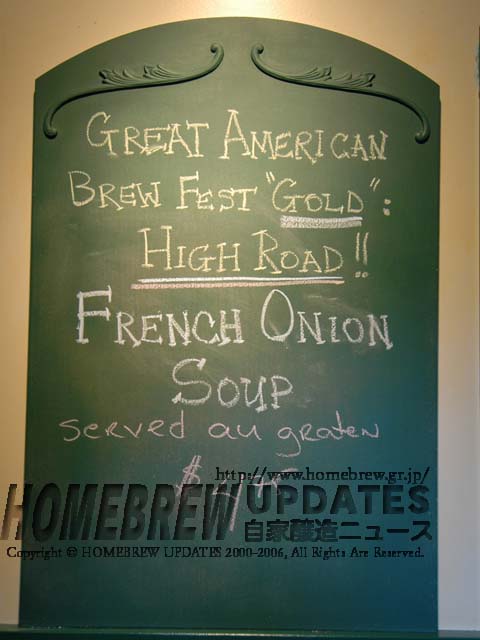 GREAT AMERICAN
BREW FEST "GOLD":
HIGH ROAD!!
FRENCH ONION
SOUP
served au graten
http://www.homebrew.gr.jp/
HOMEBREW UPDATES
自家醸造ニュース
Copyright © HOMEBREW UPDATES 2000-2006, All Rights Are Reserved.